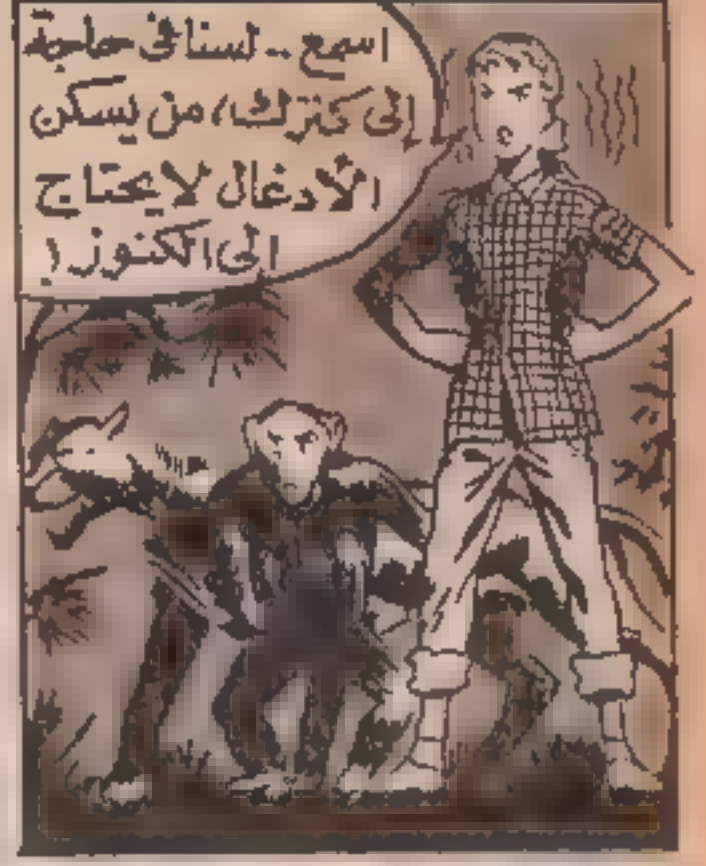 اسمع .. لسنا في حاجة
إلى كنزك، من يسكن
الأدغال لا يحتاج
إلى الكنوز!